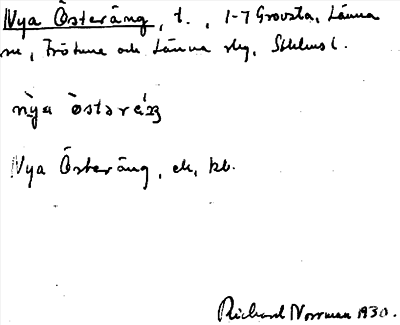 Nya Österäng, t., 1-7 Grovsta, Länna
sn, Frötuna och Länna slg, Sthlms l.
nỳa ö̀stəräŋ
Nya Österäng, ek, kb.
Richard Norrman 1930.